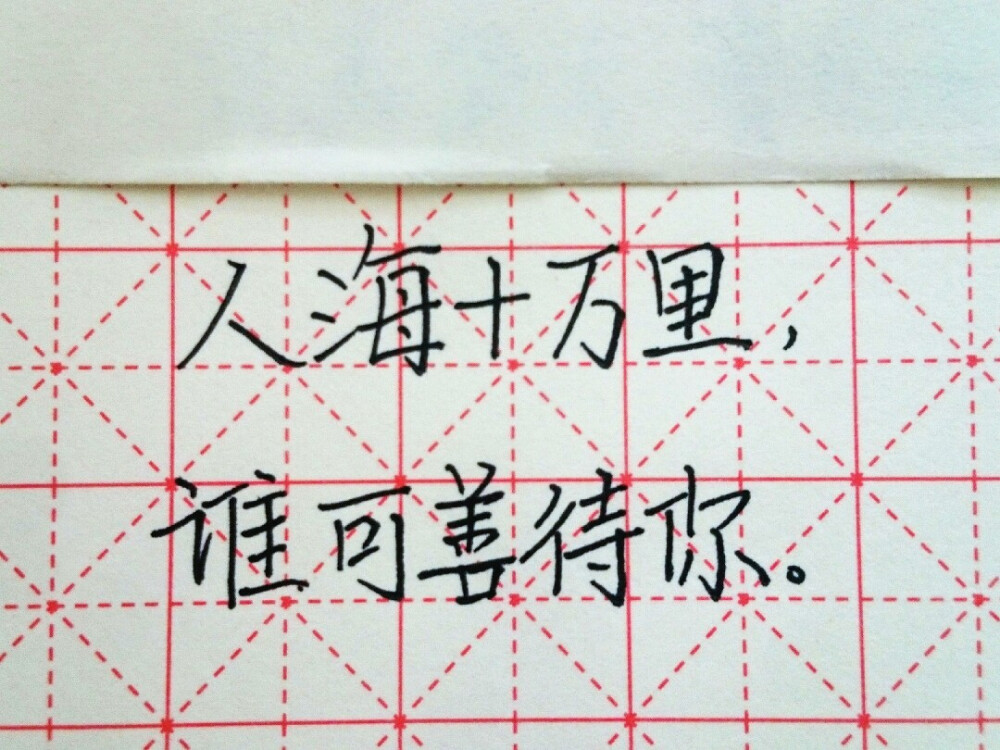 人海十万里，
谁可善待你。